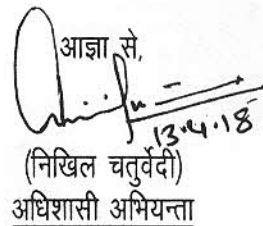 आज्ञा से,
13.4.18
(निखिल चतुर्वेदी)
अधिशासी अभियन्ता